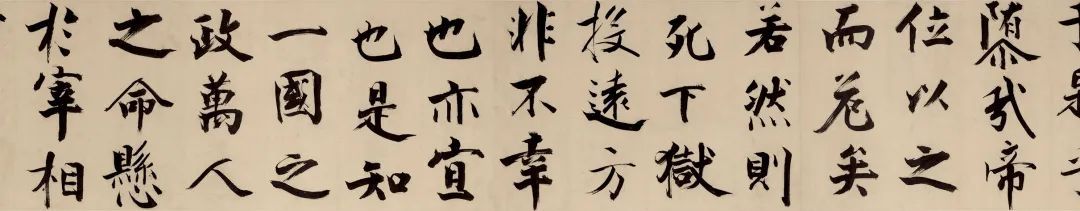 隳哉帝
位以之
而危矣
若然則
死下獄
投遠方
非不幸
也亦宜
也是知
一國之
政萬人
之命懸
於宰相